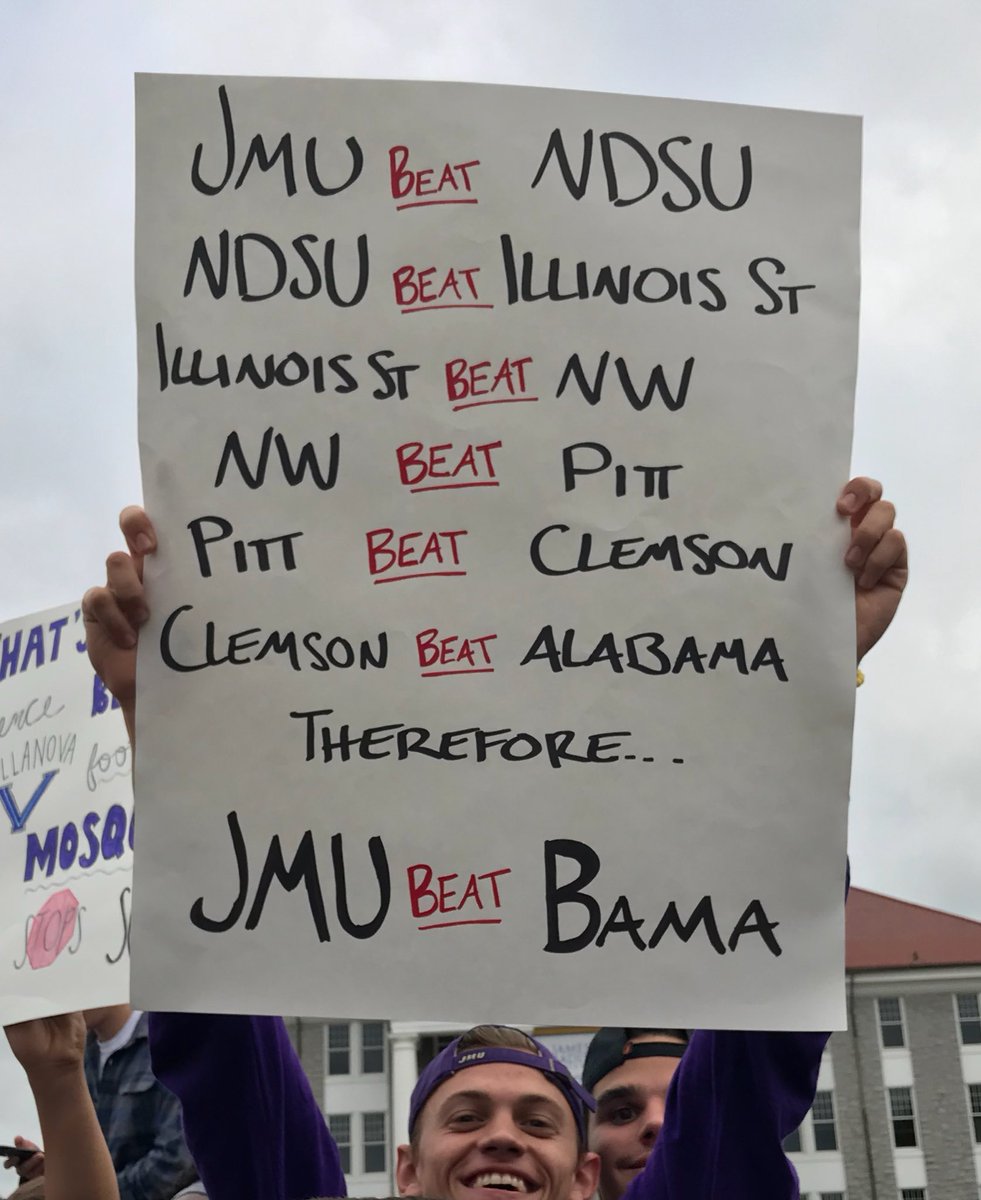 JMU BEAT NDSU
NDSU BEAT ILLINOIS ST
ILLINOIS ST BEAT NW
NW BEAT PITT
PITT BEAT CLEMSON
CLEMSON BEAT ALABAMA
THEREFORE...
JMU BEAT BAMA
V
STOPS
JMU